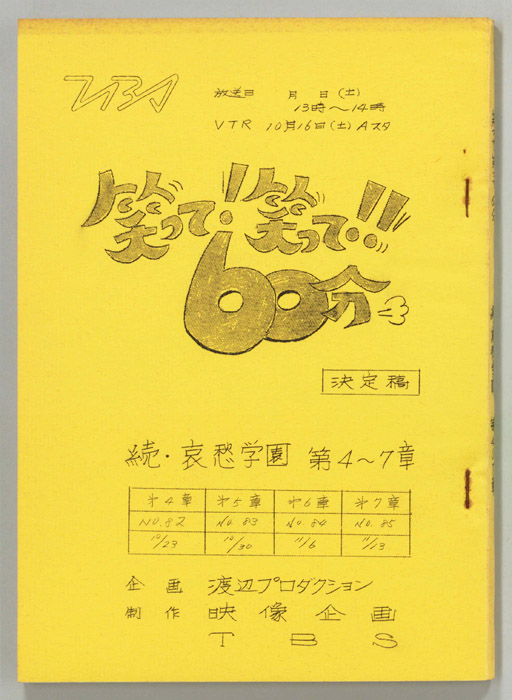 TBS
放送日 月 日(土)
13時〜14時
VTR 10月16日(土) Aスタ
笑って!笑って!!
60分
決定稿
続・哀愁学園 第4〜7章
第4章 第5章 第6章 第7章
NO.82 NO.83 NO.84 NO.85
10/23 10/30 11/6 11/13
企画 渡辺プロダクション
制作 映像企画
TBS